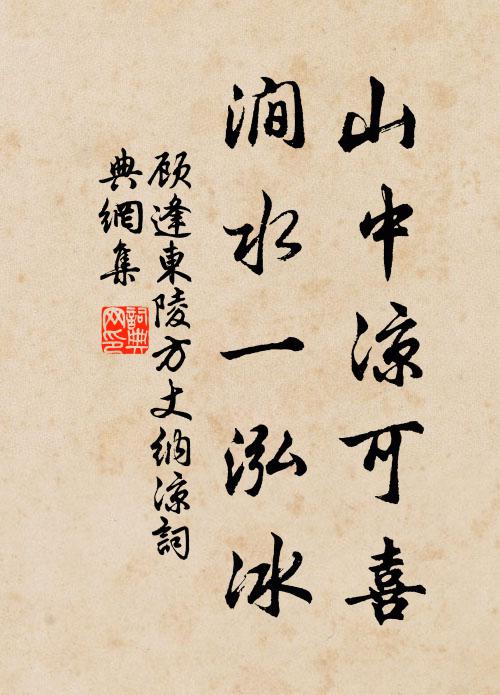 山中凉可喜
涧水一泓冰
顾逢東陵方丈納凉詞
典網集
詞典
网印